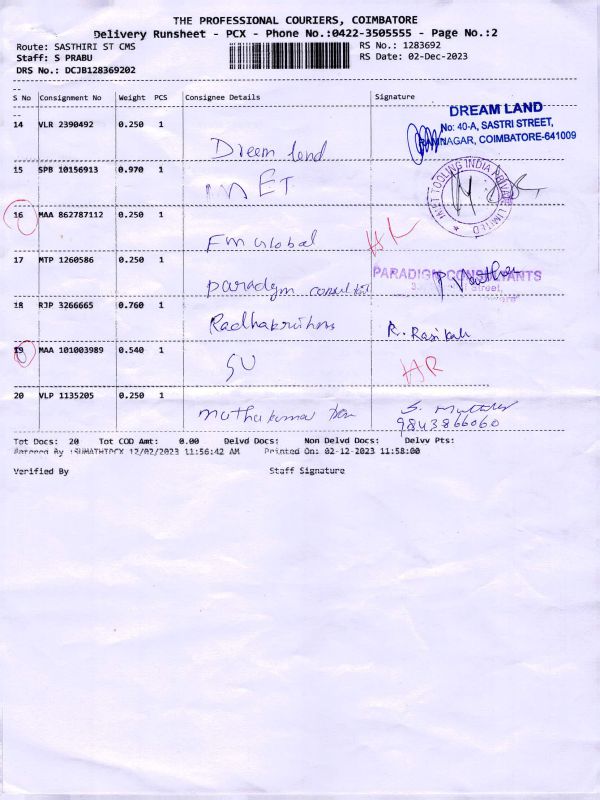 THE PROFESSIONAL COURIERS, COIMBATORE
Delivery Runsheet - PCX - Phone No.:0422-3505555 - Page No.:2
Route: SASTHIRI ST CMS
RS No.: 1283692
Staff: S PRABU
RS Date: 02-Dec-2023
DRS No.: DCJB128369202
S No Consignment No Weight PCS Consignee Details Signature
14 VLR 2390492 0.250 1
Dreem land
DREAM LAND
No: 40-A, SASTRI STREET,
RAMNAGAR, COIMBATORE-641009
15 SPB 10156913 0.970 1
IMET
TOOLING INDIA PRIVATE LIMITED
16 MAA 862787112 0.250 1
FM Global
17 MTP 1260586 0.250 1
Paradgm
PARADIGM CONSULTANTS
Street,
18 RJP 3266665 0.760 1
Radhakrishna
R. Rasikah
19 MAA 101003989 0.540 1
SU
HR
20 VLP 1135205 0.250 1
muthukumar
S.
9843866060
Tot Docs: 20 Tot COD Amt: 0.00 Delvd Docs: Non Delvd Docs: Delvv Pts:
Entered By :SUMATHIPCX 12/02/2023 11:56:42 AM Printed On: 02-12-2023 11:58:00
Verified By Staff Signature